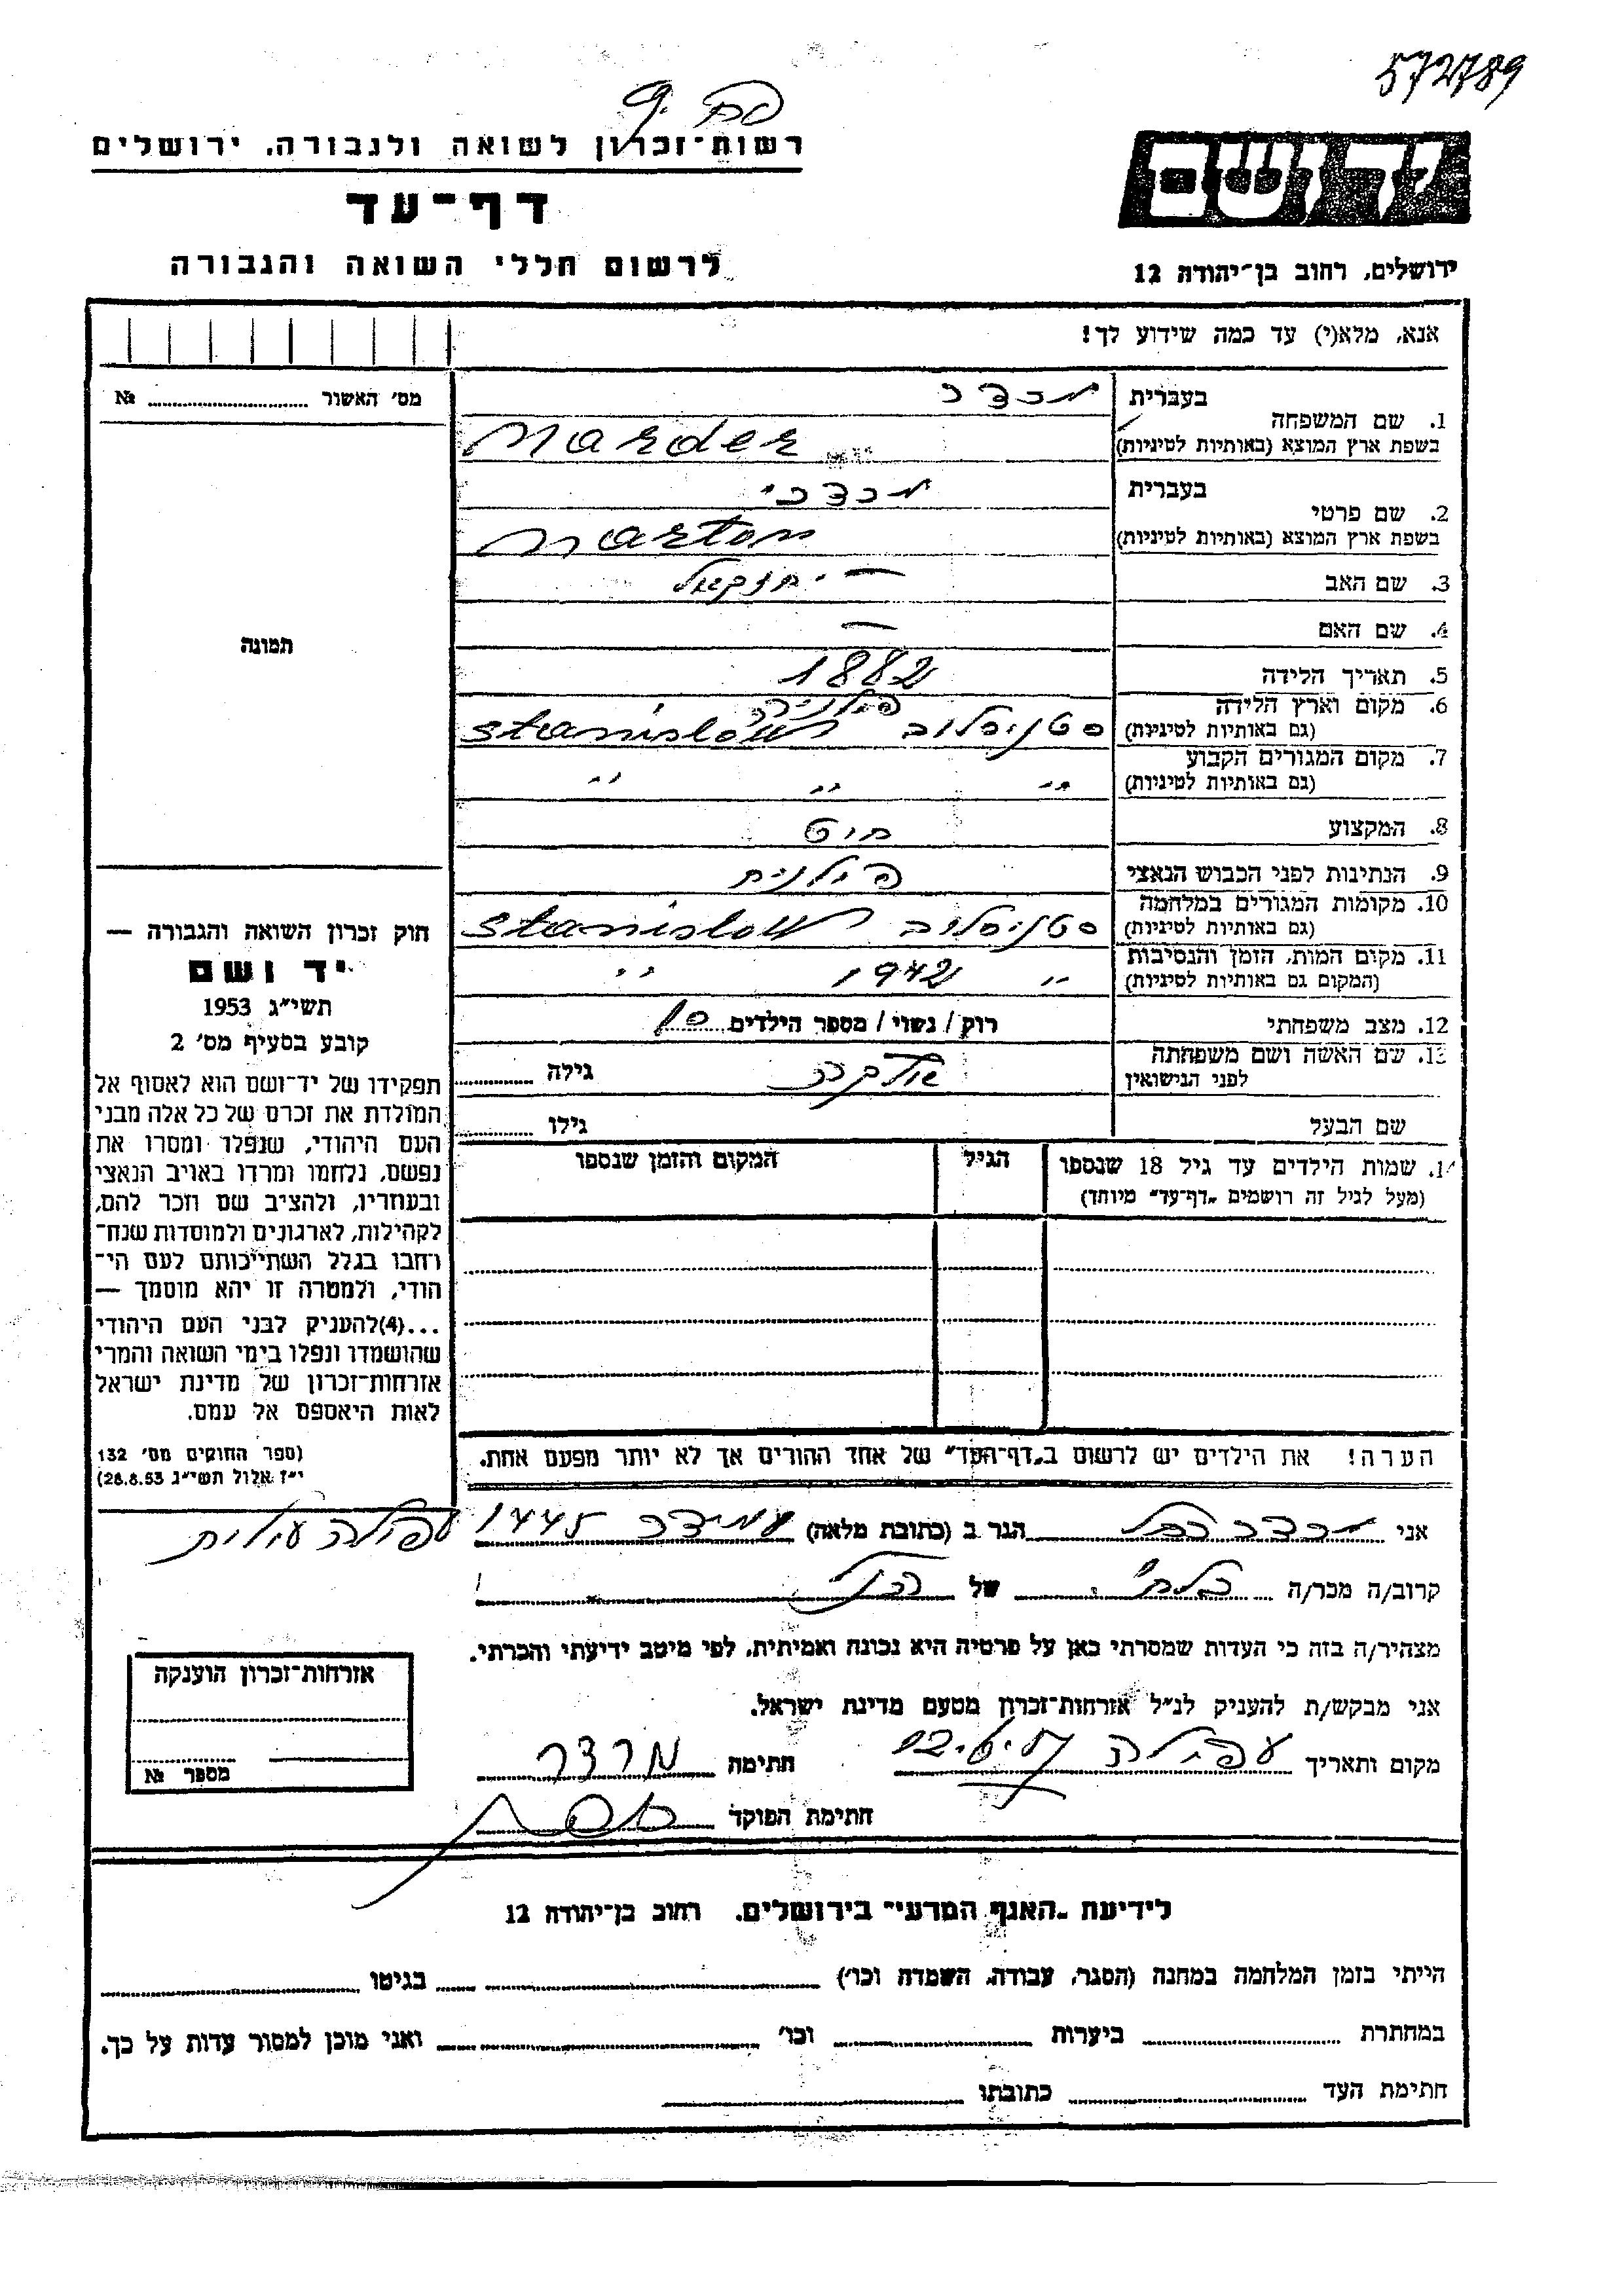 572789
רשות־זכרון לשואה ולגבורה, ירושלים
יד ושם
דף־עד
לרשום חללי השואה והגבורה
ירושלים, רחוב בן־יהודה 12
אנא, מלא(י) עד כמה שידוע לך!
מס׳ האשור № 
בעברית מרדר
1. שם המשפחה
בשפת ארץ המוצא (באותיות לטיניות) Marder
בעברית מרדכי
2. שם פרטי
בשפת ארץ המוצא (באותיות לטיניות) Marton
3. שם האב — יחזקאל
4. שם האם —
תמונה
5. תאריך הלידה 1882
6. מקום וארץ הלידה פולניה
(גם באותיות לטיניות) סטניסלוב Stanislów
7. מקום המגורים הקבוע
(גם באותיות לטיניות) " " "
8. המקצוע חיט
9. הנתינות לפני הכבוש הנאצי פולנית
10. מקומות המגורים במלחמה
(גם באותיות לטיניות) סטניסלוב Stanislow
11. מקום המות, הזמן והנסיבות
(המקום גם באותיות לטיניות) " 1942 "
12. מצב משפחתי רוק / נשוי / מספר הילדים 10
13. שם האשה ושם משפחתה
לפני הנישואין גילה
שם הבעל גילו
14. שמות הילדים עד גיל 18 שנספו הגיל המקום והזמן שנספו
(מעל לגיל זה רושמים „דף־עד״ מיוחד)
הערה! את הילדים יש לרשום ב„דף־העד״ של אחד ההורים אך לא יותר מפעם אחת.
חוק זכרון השואה והגבורה —
יד ושם
תשי״ג 1953
קובע בסעיף מס׳ 2
תפקידו של יד־ושם הוא לאסוף אל
המולדת את זכרם של כל אלה מבני
העם היהודי, שנפלו ומסרו את
נפשם, נלחמו ומרדו באויב הנאצי
ובעוזריו, ולהציב שם וזכר להם,
לקהילות, לארגונים ולמוסדות שנח־
רבו בגלל השתייכותם לעם הי־
הודי, ולמטרה זו יהא מוסמך —
...(4) להעניק לבני העם היהודי
שהושמדו ונפלו בימי השואה והמרי
אזרחות־זכרון של מדינת ישראל
לאות היאספם אל עמם.
(ספר החוקים מס׳ 132
י״ז אלול תשי״ג 28.8.53)
אני מרדר רחל הגר ב (כתובת מלאה) עמידר 1445 עפולה עילית
קרוב/ה מכר/ה כלתי של הנ״ל
מצהיר/ה בזה כי העדות שמסרתי כאן על פרטיה היא נכונה ואמיתית, לפי מיטב ידיעתי והכרתי.
אני מבקש/ת להעניק לנ״ל אזרחות־זכרון מטעם מדינת ישראל.
מקום ותאריך עפולה 12.6.57 חתימה מרדר
חתימת הפוקד
אזרחות־זכרון הוענקה
מספר №
לידיעת „האגף המדעי״ בירושלים, רחוב בן־יהודה 12
הייתי בזמן המלחמה במחנה (הסגר, עבודה, השמדה וכו׳) בגיטו
במחתרת ביערות וכו׳ ואני מוכן למסור עדות על כך.
חתימת העד כתובתו